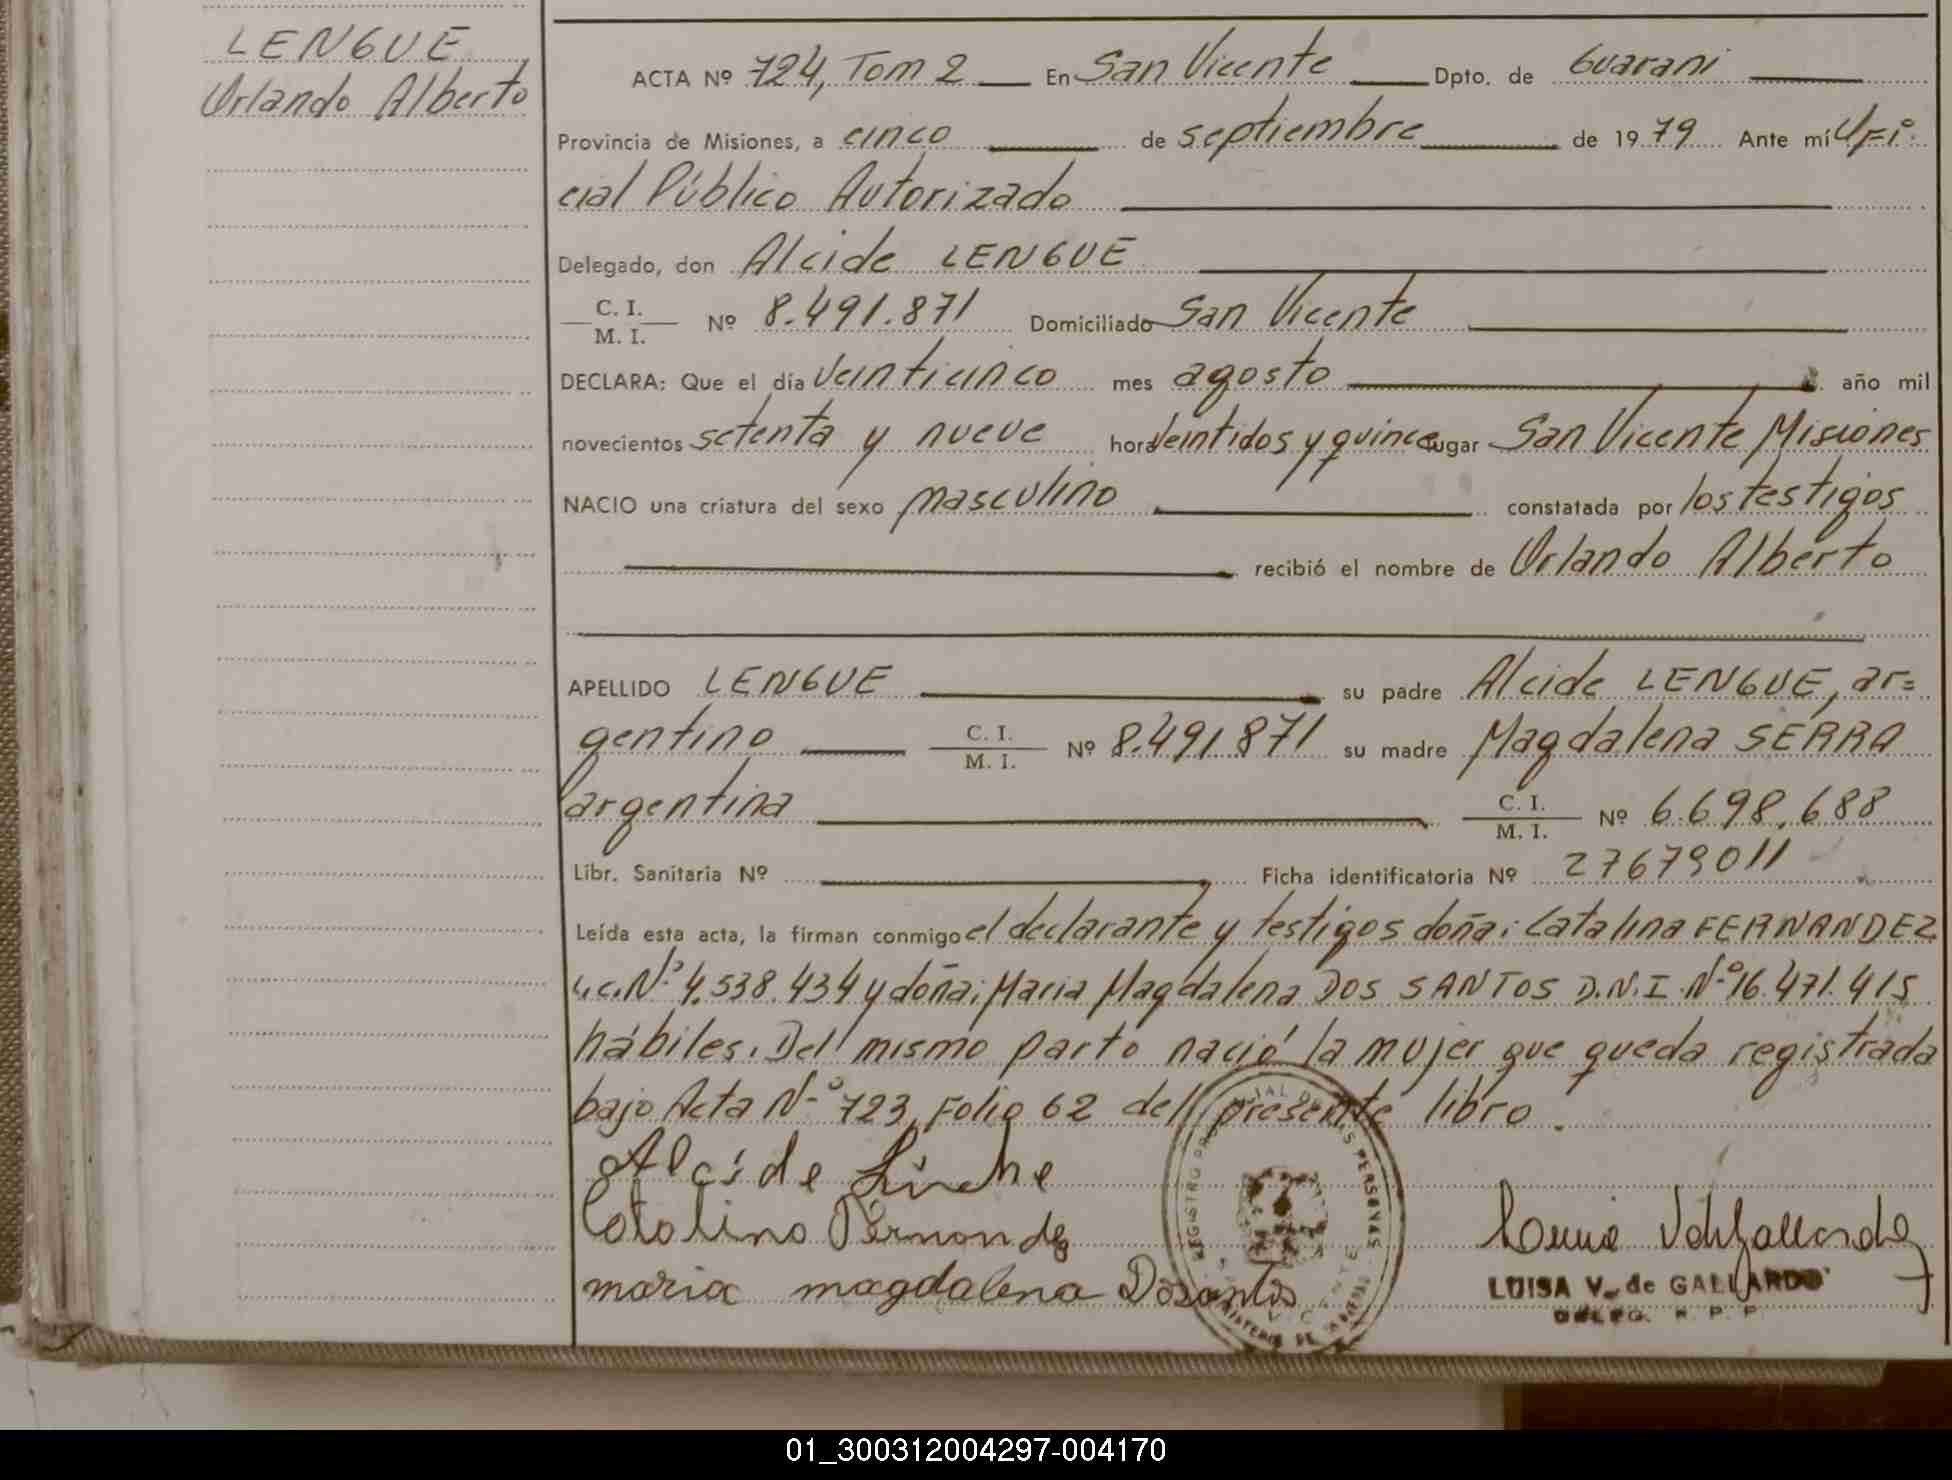 LENGUE
Orlando Alberto
ACTA Nº 724, Tom 2 En San Vicente Dpto. de Guarani
Provincia de Misiones, a cinco de septiembre de 1979 Ante mí Ofi
cial Público Autorizado
Delegado, don Alcide LENGUE
C. I.
M. I. Nº 8.491.871 Domiciliado San Vicente
DECLARA: Que el día veinticinco mes agosto año mil
novecientos setenta y nueve hora veintidos y quince lugar San Vicente Misiones
NACIO una criatura del sexo masculino constatada por los testigos
recibió el nombre de Orlando Alberto
APELLIDO LENGUE su padre Alcide LENGUE, ar=
gentino C. I. M. I. Nº 8.491.871 su madre Magdalena SERRA
argentina C. I. M. I. Nº 6.698.688
Libr. Sanitaria Nº Ficha identificatoria Nº 27679011
Leída esta acta, la firman conmigo el declarante y testigos doña: Catalina FERNANDEZ
L.C. Nº 4.538.434 y doña: Maria Magdalena DOS SANTOS D.N.I. Nº 16.471.415
hábiles. Del mismo parto nació la mujer que queda registrada
bajo Acta Nº 723, Folio 62 del presente libro.
Alcide
Catalina Fernandez
maria magdalena Dosantos
REGISTRO DE LAS PERSONAS
LUISA V. de GALLARDO
DELEG. R. P. P.
01_300312004297-004170